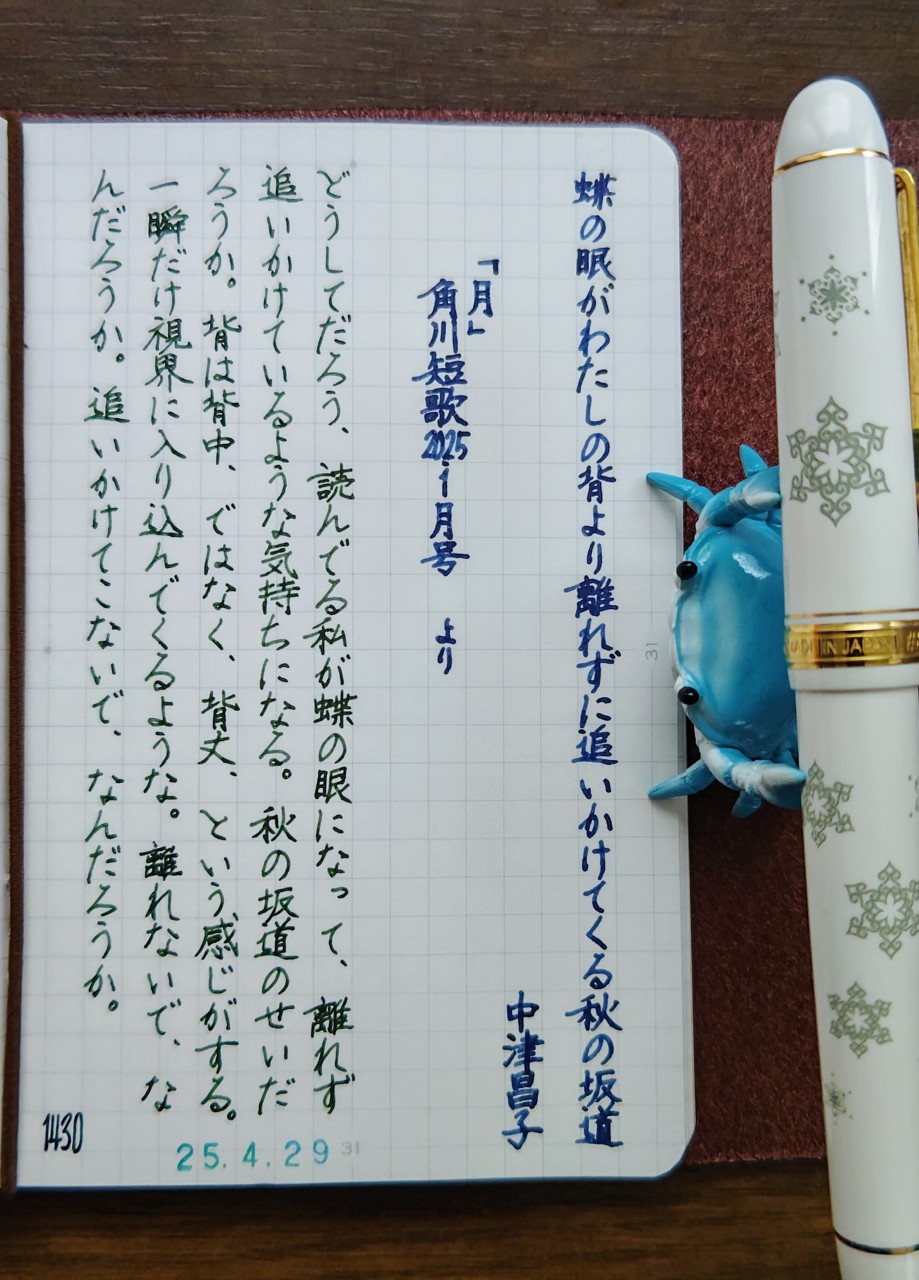 蝶の眼がわたしの背より離れずに追いかけてくる秋の坂道
中津昌子
「月」
角川短歌2025.1月号 より
どうしてだろう、読んでる私が蝶の眼になって、離れず
追いかけているような気持ちになる。秋の坂道のせいだ
ろうか。背は背中、ではなく、背丈、という感じがする。
一瞬だけ視界に入り込んでくるような。離れないで、な
んだろうか。追いかけてこないで、なんだろうか。
1430
25.4.29
31
31
MADE IN JAPAN